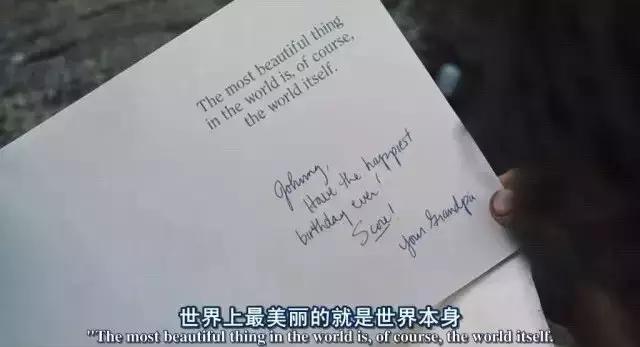 The most beautiful thing
in the world is, of course,
the world itself.
Johnny,
Have the happiest
birthday ever!
Score!
Your Grandpa
世界上最美丽的就是世界本身
"The most beautiful thing in the world is, of course, the world itself.